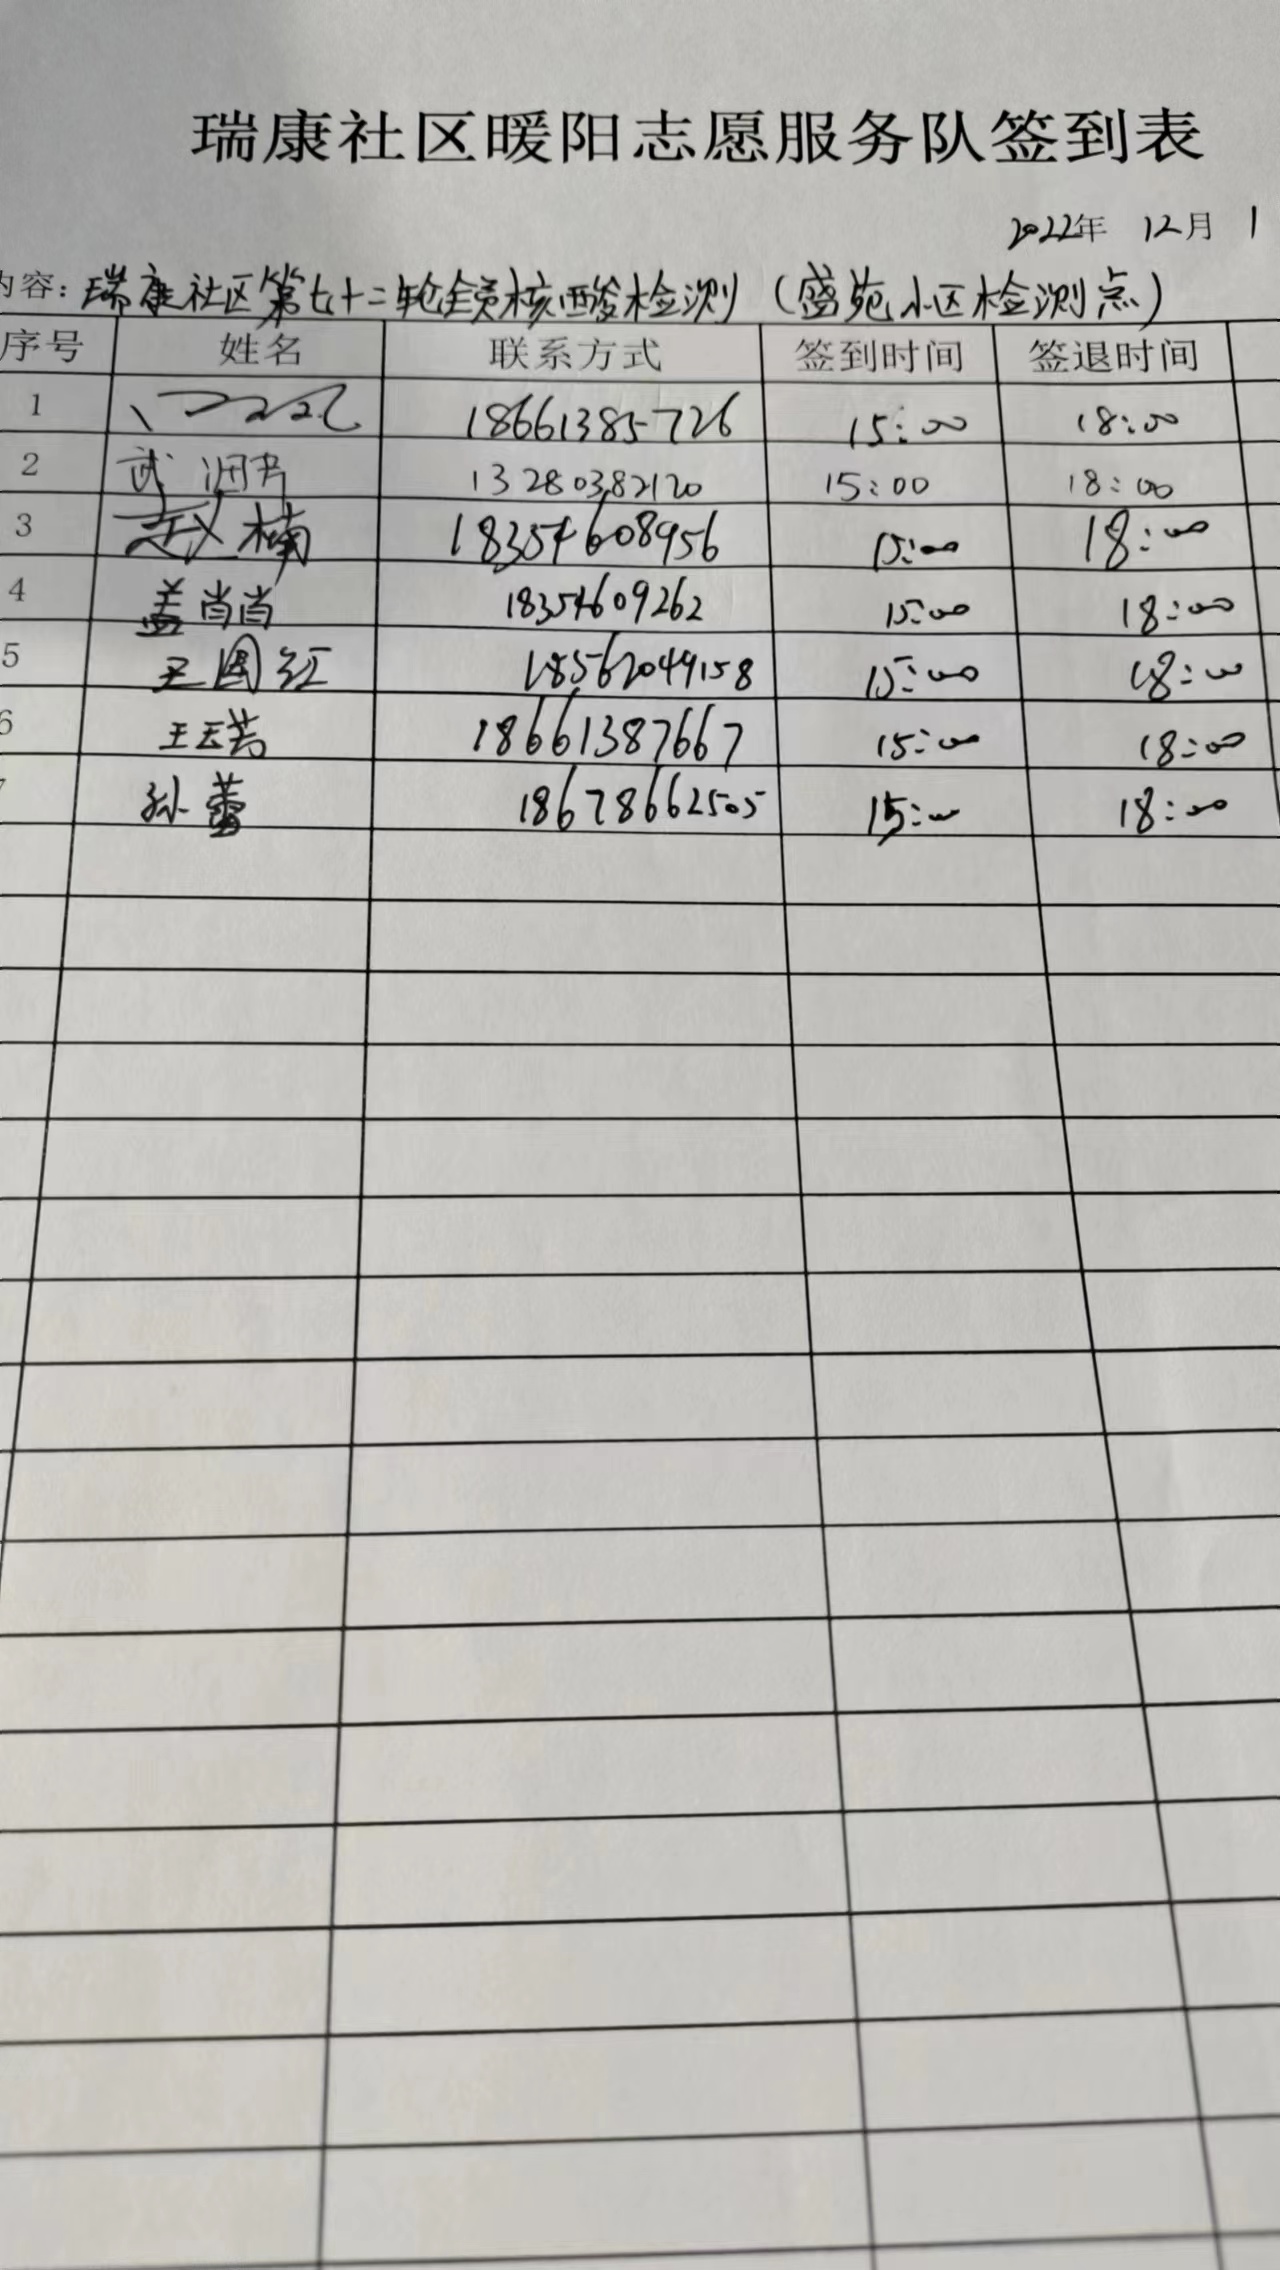 瑞康社区暖阳志愿服务队签到表
2022年 12月 1
内容：瑞康社区第七十二轮全员核酸检测（盛苑小区检测点）
序号 姓名 联系方式 签到时间 签退时间
1 18661385726 15:00 18:00
2 武 13280382120 15:00 18:00
3 赵楠 18354608956 15:00 18:00
4 盖肖肖 18354609262 15:00 18:00
5 王国红 18562049158 15:00 18:00
6 王云芸 18661387667 15:00 18:00
孙蕾 18678662505 15:00 18:00